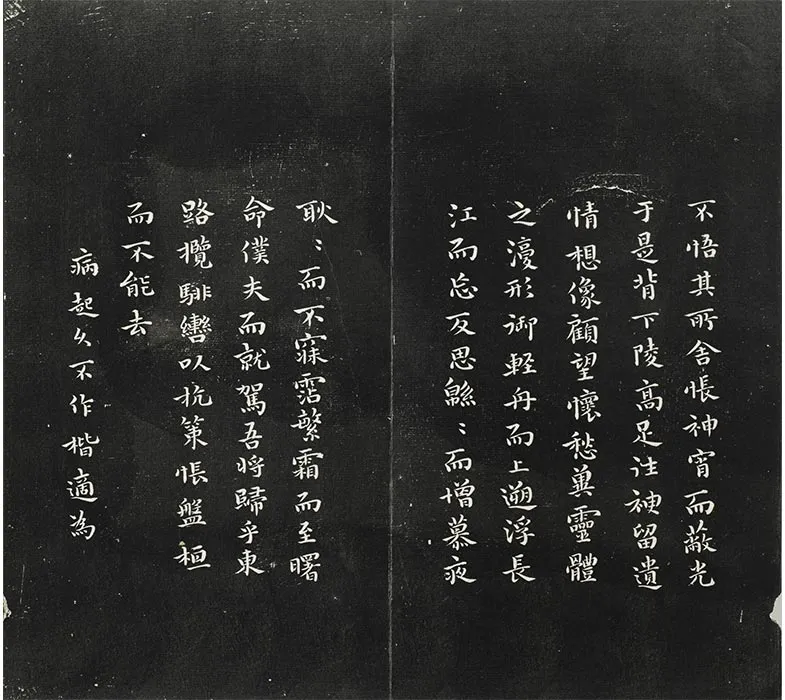 不悟其所舍悵神宵而蔽光
于是背下陵高足往神留遺
情想像顧望懷愁冀靈體
之濅形御輕舟而上遡浮長
江而忘反思緜〻而增慕夜
耿〻而不寐霑繁霜而至曙
命僕夫而就駕吾將歸乎東
路攬騑轡以抗策悵盤桓
而不能去
病起久不作楷適為